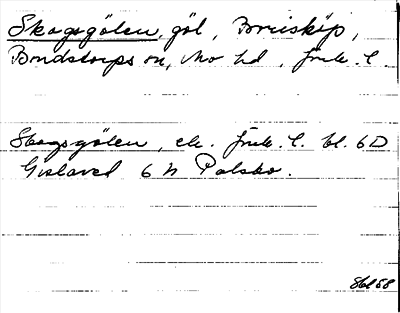 Skogsgölen, göl, Brusköp,
Bondstorps sn, Mo hd, Jönk. l.
Skogsgölen, ek. Jönk. l. bl. 6D
Gislaved 6 h Palsbo.
Hbl 68